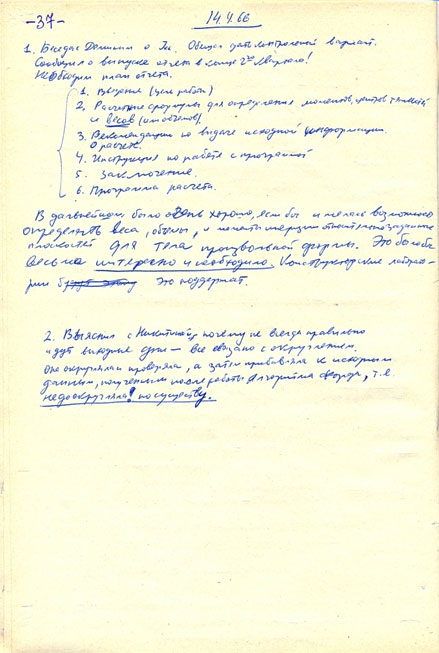 -37-
14.4.66
1. Беседа о Обещал дать контрольный вариант.
Сообщил о выпуске отчета в конце 2го квартала!
Необходим план отчета.
1. Введение (цель работы)
2. Расчетные для определения моментов, центров тяжести
и весов (или объемов)
3. Рекомендации по выдаче исходной информации
о расчете.
4. Инструкция по работе с программой
5. Заключение.
6. Программа расчета.
В дальнейшем было очень хорошо, если бы имелась возможность
определять веса, объемы, и моменты инерции относительно заданных
плоскостей для тела произвольной формы. Это было бы
весьма интересно и необходимо. Конструкторские лаборато-
рии это поддержат.
2. Выяснил с почему не всегда правильно
идут выходные — все связано с округлением.
Она округляла проверяла, а затем прибавляла к исходным
данным, полученным после работы алгоритма т.е.
недоокругляла! по существу.